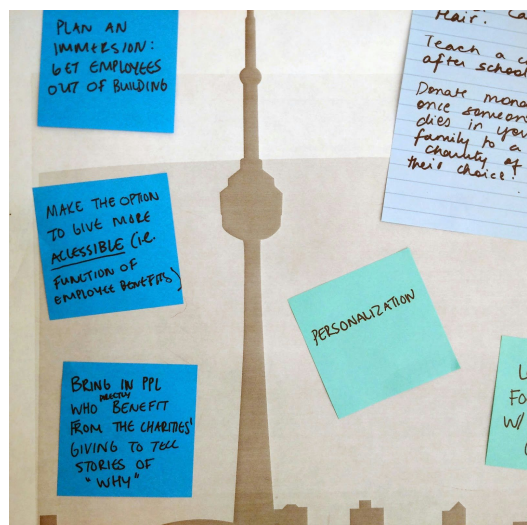 PLAN AN
IMMERSION:
GET EMPLOYEES
OUT OF BUILDING
MAKE THE OPTION
TO GIVE MORE
ACCESSIBLE (i.e.
FUNCTION OF
EMPLOYEE BENEFITS)
BRING IN PPL
WHO DIRECTLY BENEFIT
FROM THE CHARITIES'
GIVING TO TELL
STORIES OF
"WHY"
PERSONALIZATION
Hair.
Teach a
after school
Donate
once someone
dies in
family to a
charity of
their choice.
W/